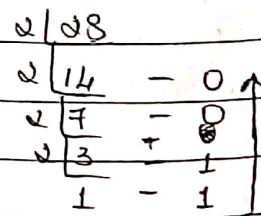 2 28
2 14 - 0
2 7 - 0
2 3 - 1
1 - 1